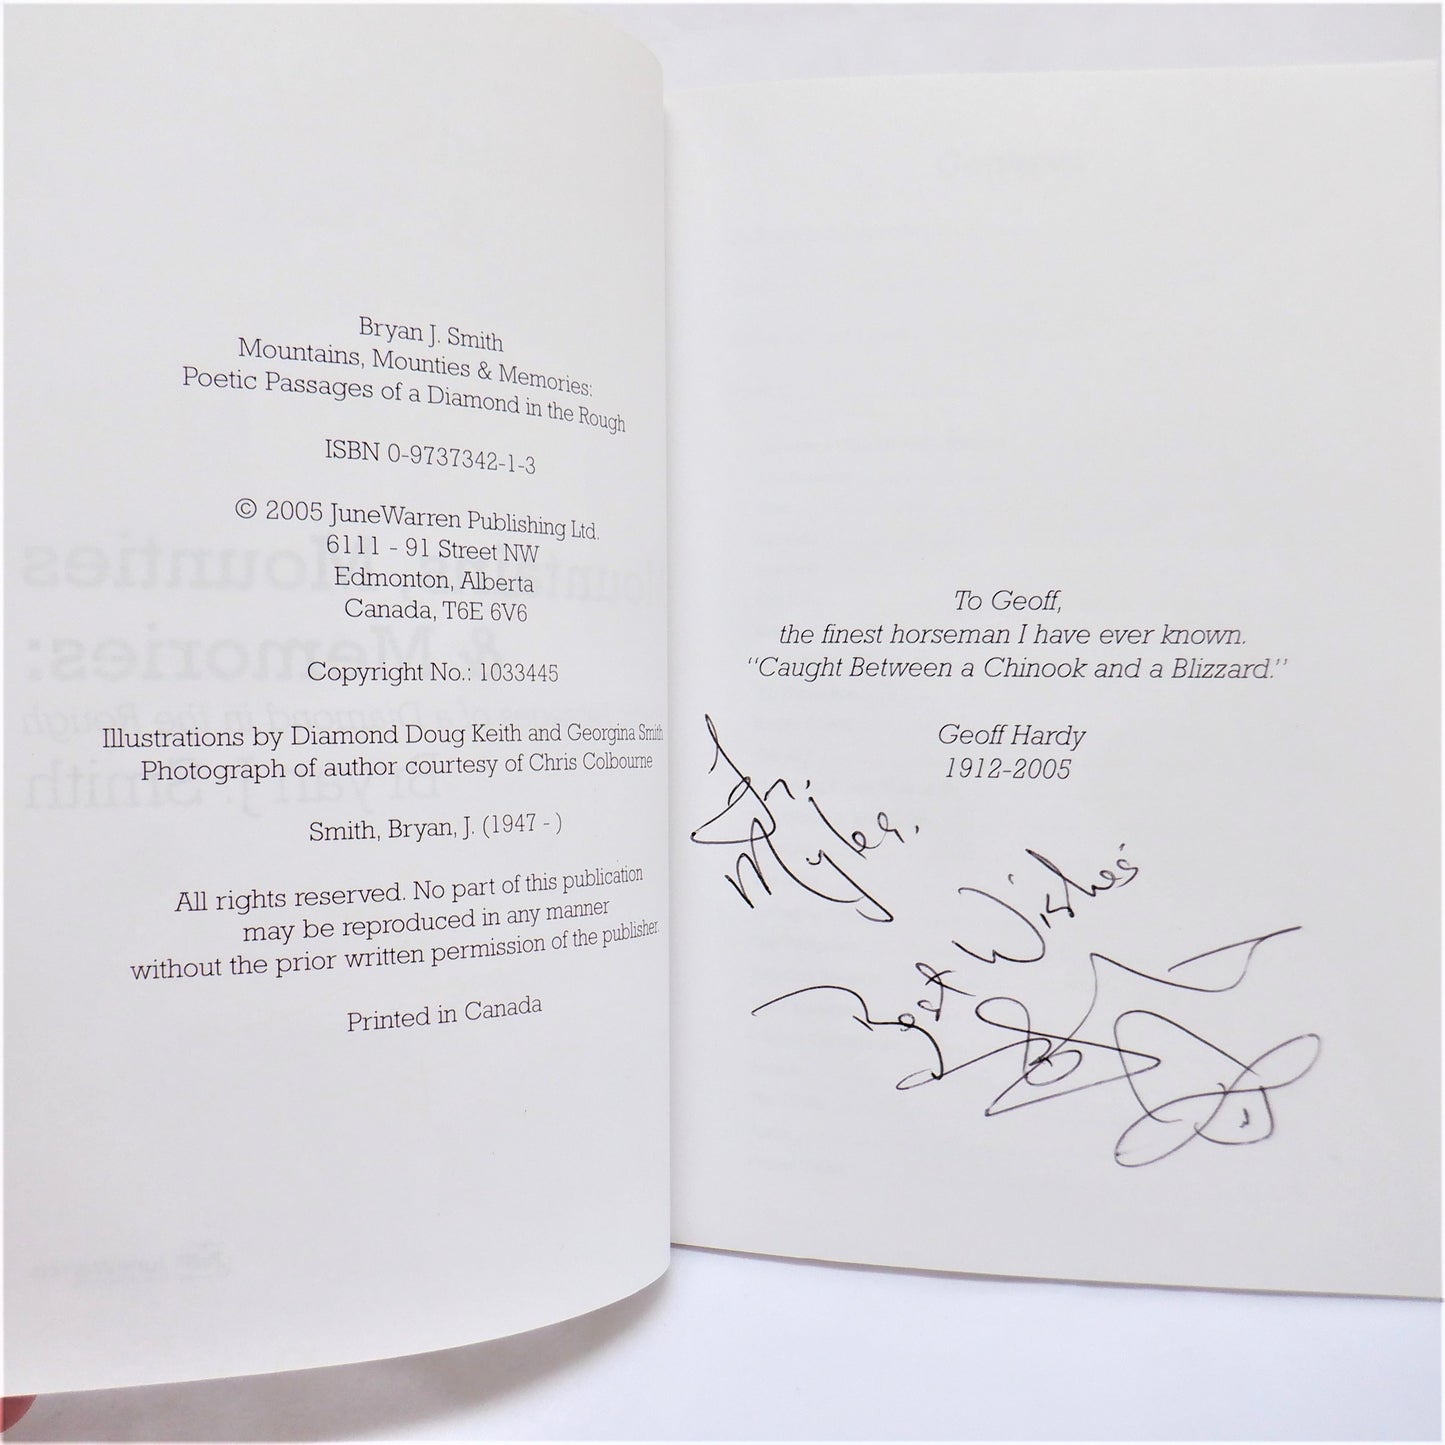 Bryan J. Smith
Mountains, Mounties & Memories:
Poetic Passages of a Diamond in the Rough
ISBN 0-9737342-1-3
© 2005 JuneWarren Publishing Ltd.
6111 - 91 Street NW
Edmonton, Alberta
Canada, T6E 6V6
Copyright No.: 1033445
Illustrations by Diamond Doug Keith and Georgina Smith
Photograph of author courtesy of Chris Colbourne
Smith, Bryan, J. (1947 - )
All rights reserved. No part of this publication
may be reproduced in any manner
without the prior written permission of the publisher.
Printed in Canada
To Geoff,
the finest horseman I have ever known.
"Caught Between a Chinook and a Blizzard."
Geoff Hardy
1912-2005
Myles.
Best Wishes